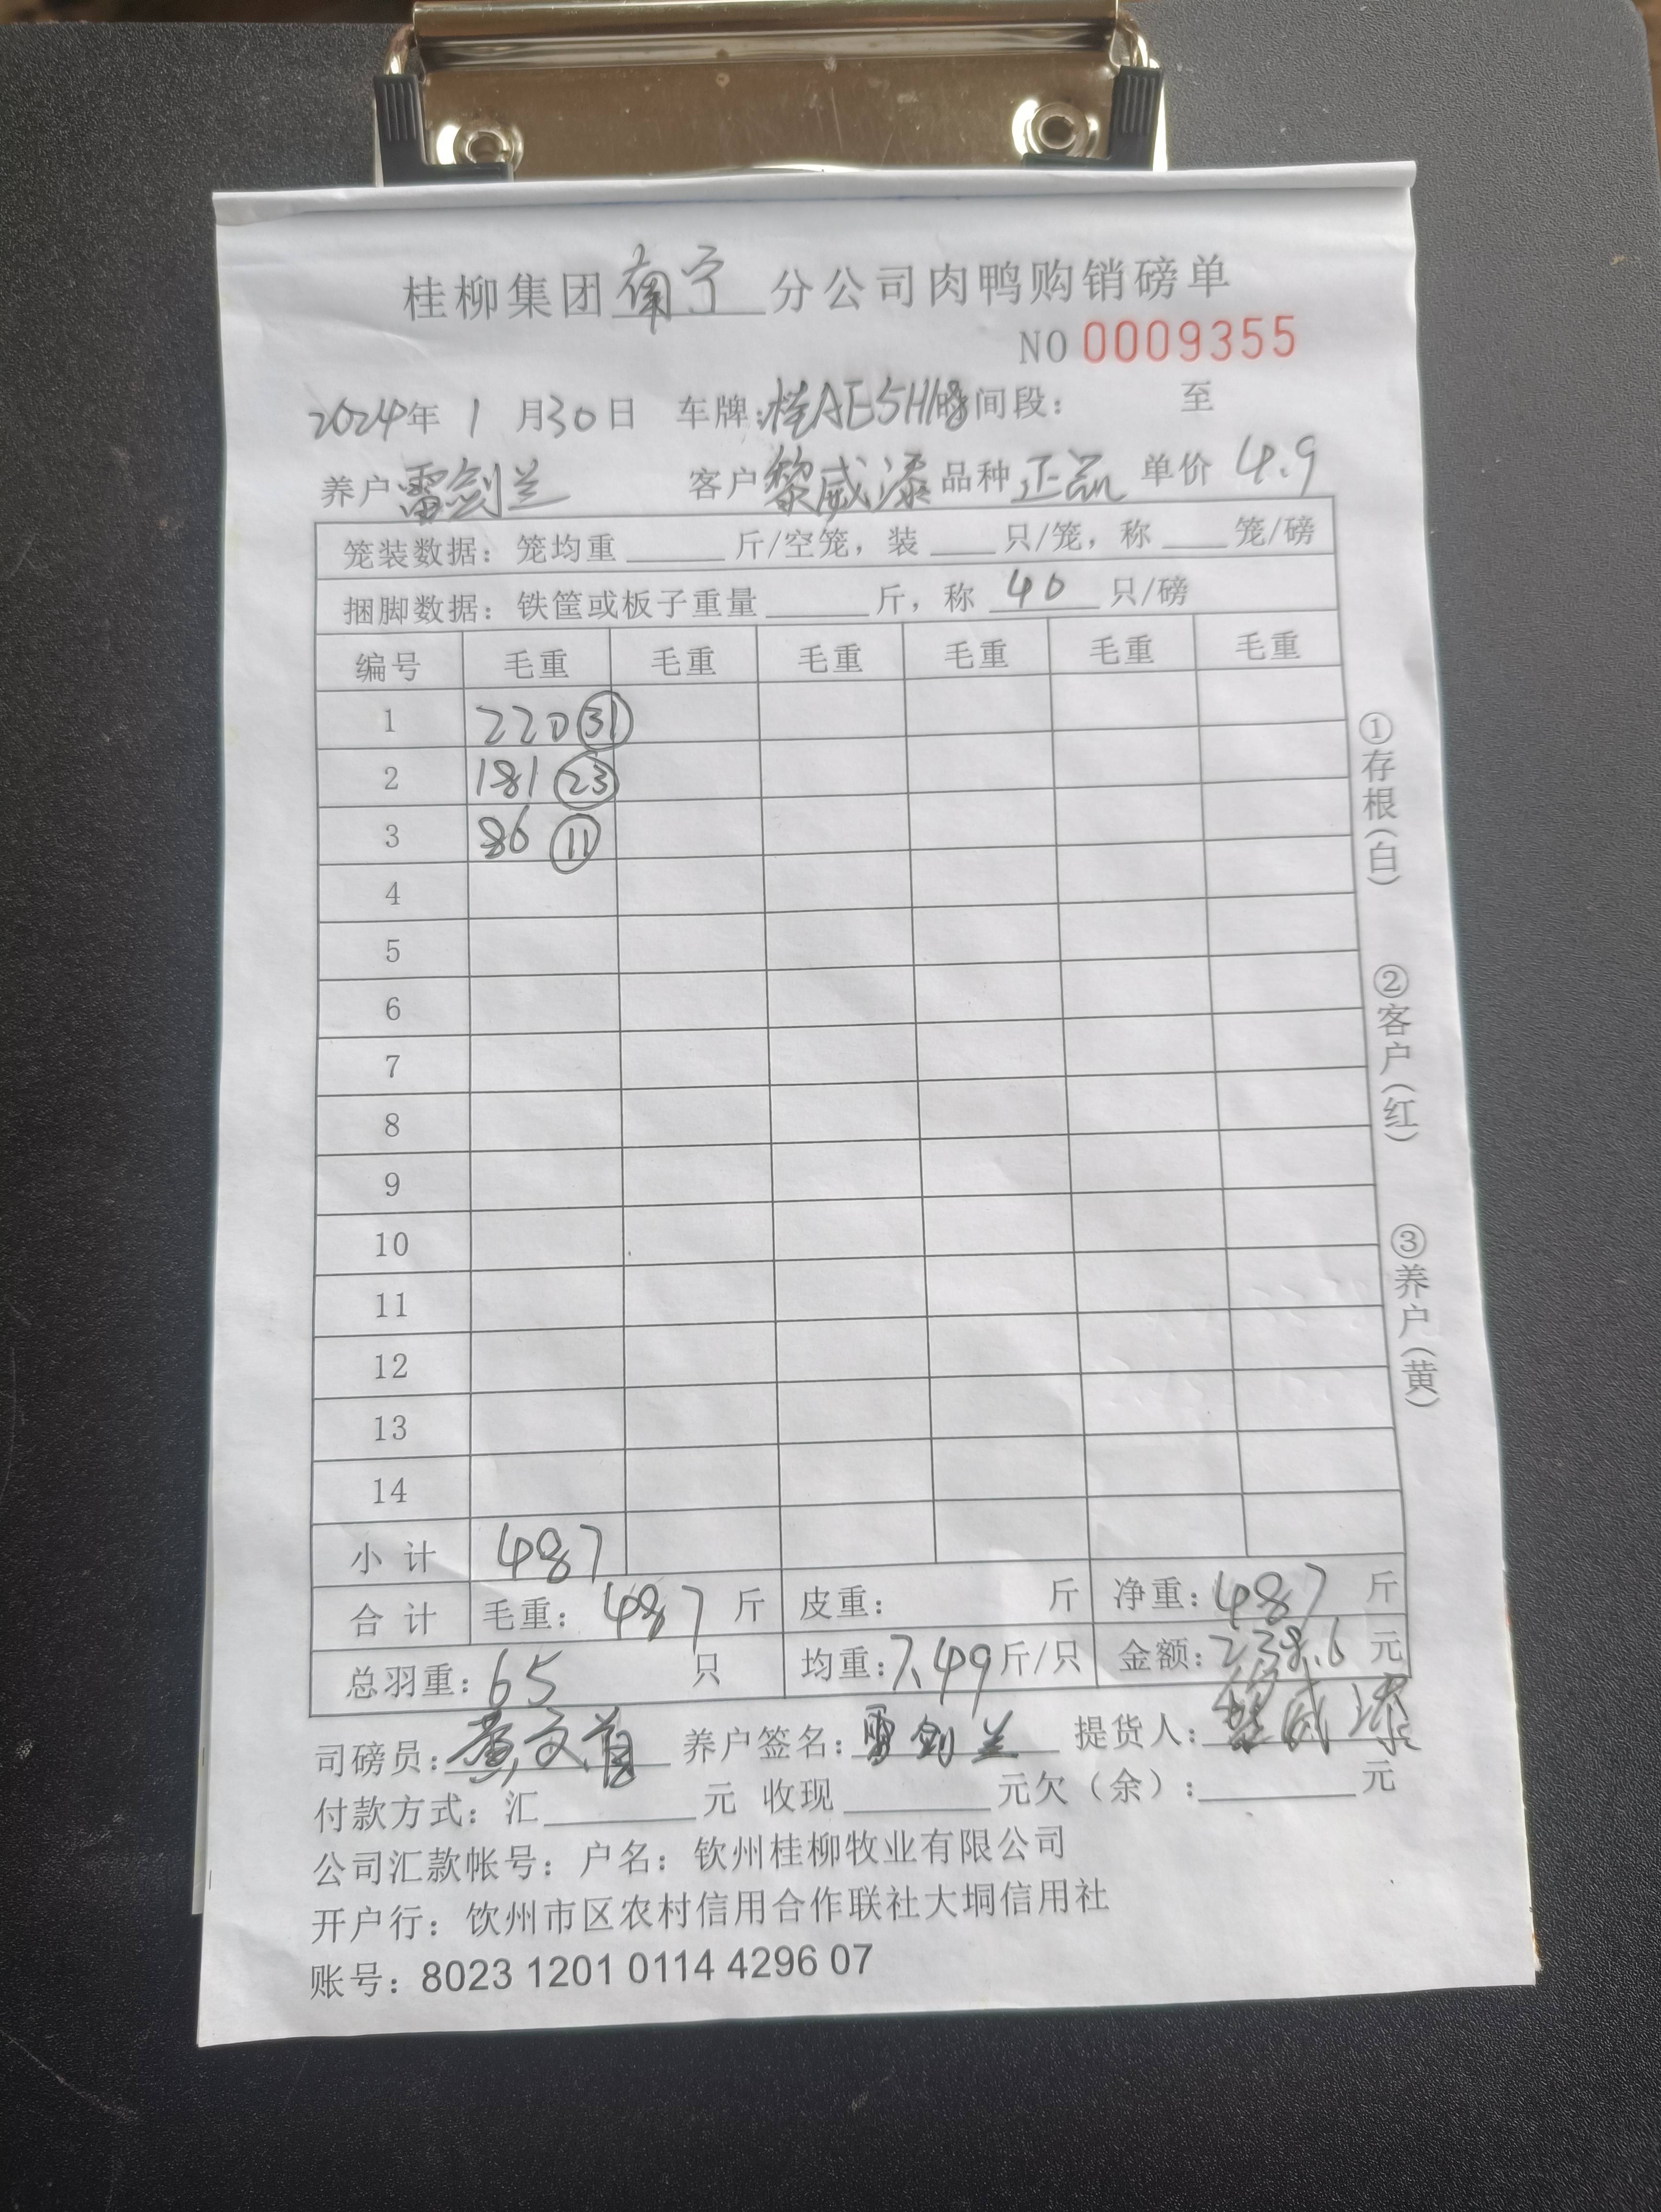 桂柳集团南宁分公司肉鸭购销磅单
NO 0009355
2024年 1 月30日 车牌:桂AE5H18 时间段: 至
养户雷剑兰 客户黎威添 品种正品 单价 4.9
笼装数据: 笼均重 斤/空笼, 装 只/笼, 称 笼/磅
捆脚数据: 铁筐或板子重量 斤, 称 40 只/磅
编号 毛重 毛重 毛重 毛重 毛重 毛重
1 220 ㉛
2 181 ㉓
3 86 ⑪
4
5
6
7
8
9
10
11
12
13
14
小计 487
合计 毛重: 487 斤 皮重: 斤 净重: 487 斤
总羽重: 65 只 均重: 7.49 斤/只 金额: 2386 元
司磅员: 黄文 养户签名: 雷剑兰 提货人: 黎威添
付款方式: 汇 元 收现 元欠(余): 元
公司汇款帐号: 户名: 钦州桂柳牧业有限公司
开户行: 钦州市区农村信用合作联社大垌信用社
账号: 8023 1201 0114 4296 07
①存根(白)
②客户(红)
③养户(黄)